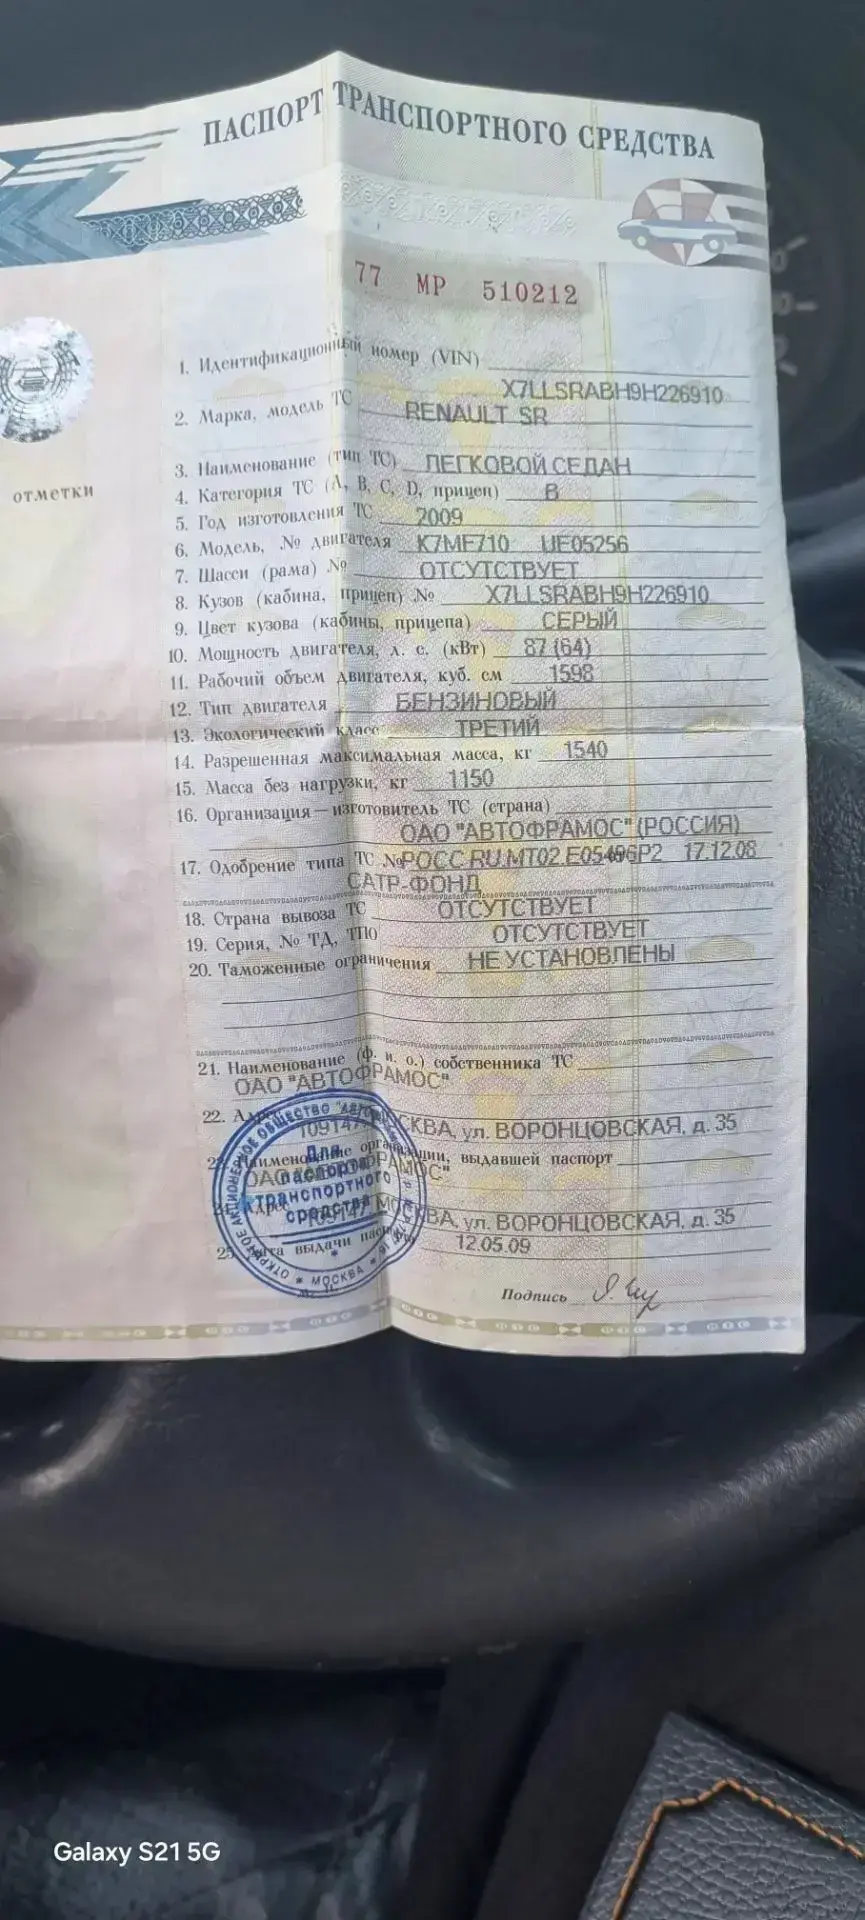 ПАСПОРТ ТРАНСПОРТНОГО СРЕДСТВА
77 МР 510212
отметки
1. Идентификационный номер (VIN)
X7LLSRABH9H226910
2. Марка, модель ТС RENAULT SR
3. Наименование (тип ТС) ЛЕГКОВОЙ СЕДАН
4. Категория ТС (А, В, С, D, прицеп) В
5. Год изготовления ТС 2009
6. Модель, № двигателя K7MF710 UE05256
7. Шасси (рама) № ОТСУТСТВУЕТ
8. Кузов (кабина, прицеп) № X7LLSRABH9H226910
9. Цвет кузова (кабины, прицепа) СЕРЫЙ
10. Мощность двигателя, л. с. (кВт) 87 (64)
11. Рабочий объем двигателя, куб. см 1598
12. Тип двигателя БЕНЗИНОВЫЙ
13. Экологический класс ТРЕТИЙ
14. Разрешенная максимальная масса, кг 1540
15. Масса без нагрузки, кг 1150
16. Организация—изготовитель ТС (страна)
ОАО "АВТОФРАМОС" (РОССИЯ)
17. Одобрение типа ТС № РОСС RU.MT02.E05496P2 17.12.08
САТР-ФОНД
18. Страна вывоза ТС ОТСУТСТВУЕТ
19. Серия, № ТД, ТПО ОТСУТСТВУЕТ
20. Таможенные ограничения НЕ УСТАНОВЛЕНЫ
21. Наименование (ф. и. о.) собственника ТС
ОАО "АВТОФРАМОС"
22. Адрес
109147, МОСКВА, ул. ВОРОНЦОВСКАЯ, д. 35
23. Наименование организации, выдавшей паспорт
ОАО "АВТОФРАМОС"
24. Адрес
109147, МОСКВА, ул. ВОРОНЦОВСКАЯ, д. 35
25. Дата выдачи паспорта 12.05.09
Для
паспорта
транспортного
средства
ОТКРЫТОЕ АКЦИОНЕРНОЕ ОБЩЕСТВО
* МОСКВА *
Подпись
Galaxy S21 5G